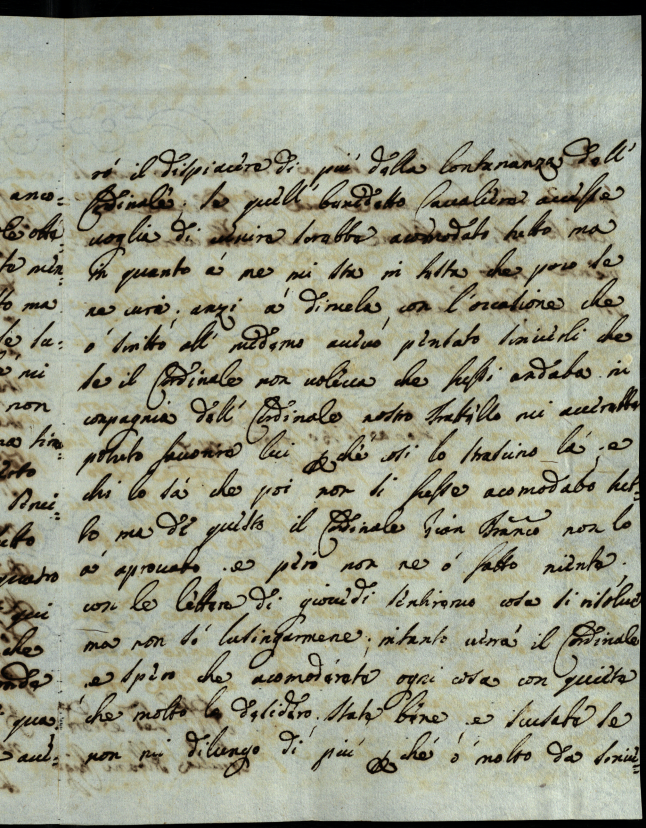 anco=
ma
non
Scrivi=
quadro
qui
che
qua
ró il dispiacere di piú della lontananza dell'
Cardinale; se quell' benedetto Cavaliere avesse
voglia di venire sarebbe acomodato tutto ma
in quanto á me mi sta in testa che poco se
ne curi. anzi á dirvela con l'occasione che
ó scritto all' medemo avevo pensato scriverli che
se il Cardinale non voleva che stessi andaba in
conpagnia dell' Cardinale nostro Fratello mi averebbe
potuto favorire lui che cosi lo strascino lá; e
chi lo sá che poi non si fusse acomodato tut=
to ma di questo il Cardinale Gian Franco non lo
á aprovato. e peró non ne ó fatto niente.
con le lettere di giovedi sentiremo cosa si risolve
ma non só lusingarmene; intanto verrá il Cardinale
e spero che acomodarete ogni cosa con quiete
che molto la desidero. State bene e scusate se
non mi dilungo di piú ché ó molto da scrive=